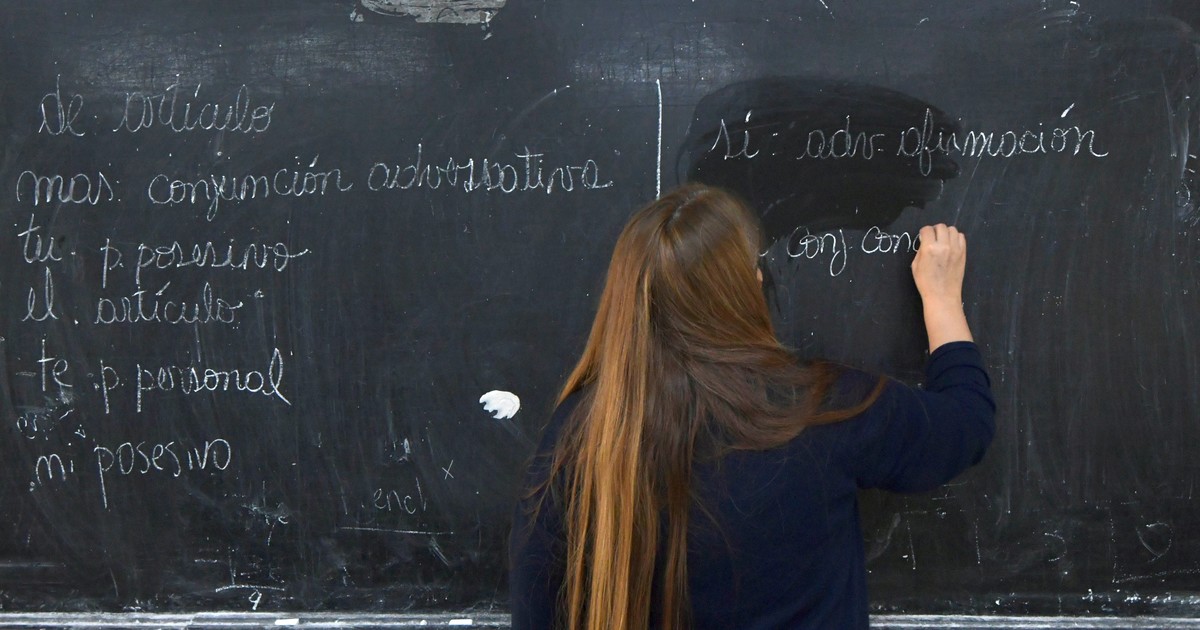 de. artículo
mas: conjunción adversativa
tu. p. posesivo
el. artículo
-te p. personal
mi posesivo
encl
9
sí: adv. afirmación
conj. con